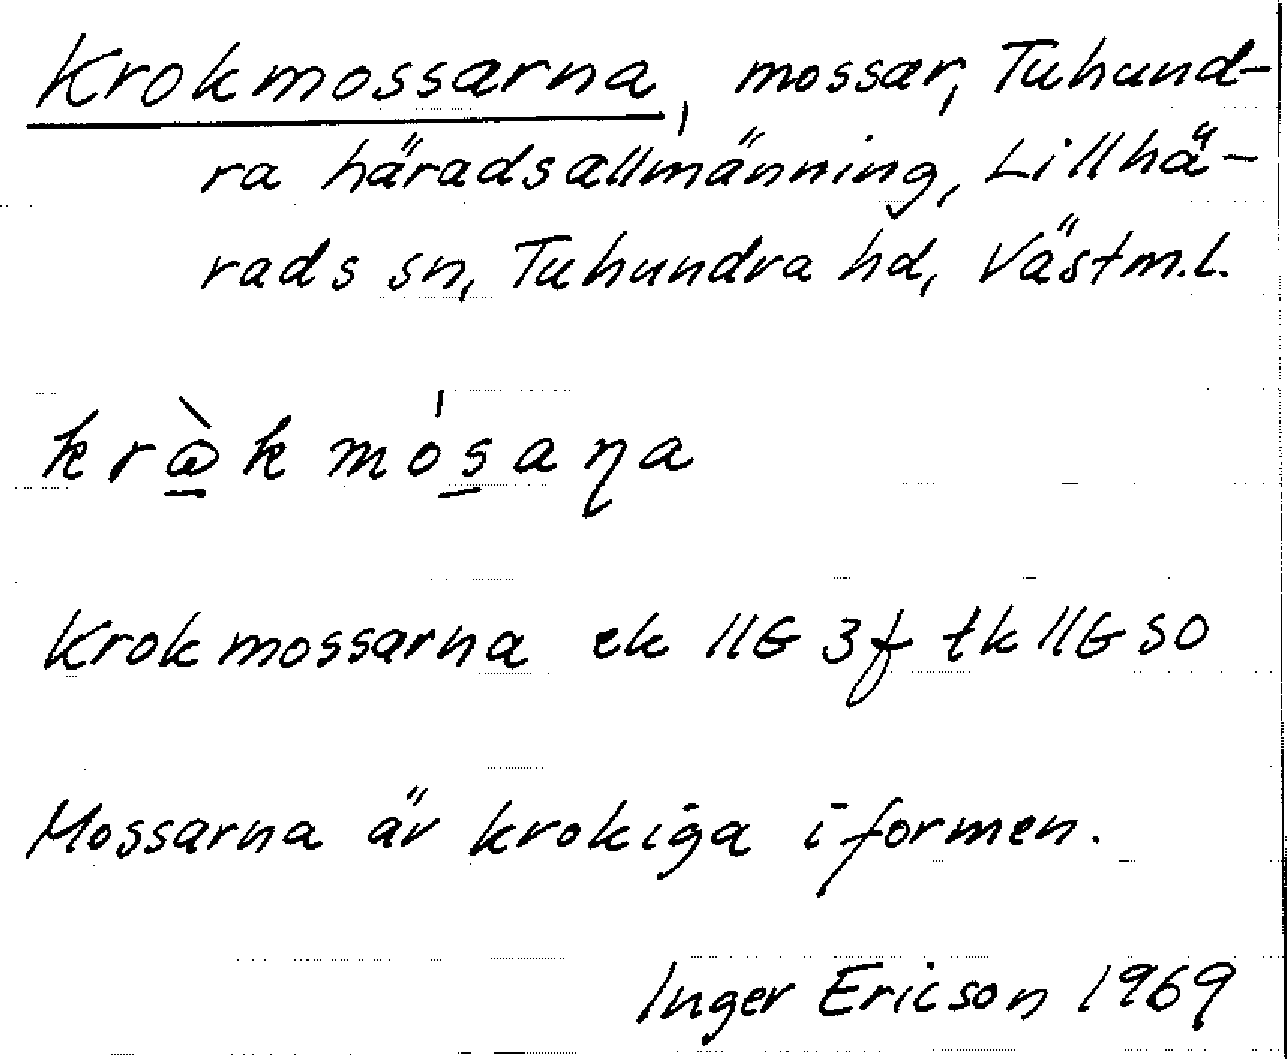 Krokmossarna, mossar, Tuhund-
ra häradsallmänning, Lillhä-
rads sn, Tuhundra hd, Västm.l.
Krokmossarna ek 11G 3f tk 11G SO
Mossarna är krokiga i formen.
Inger Ericson 1969